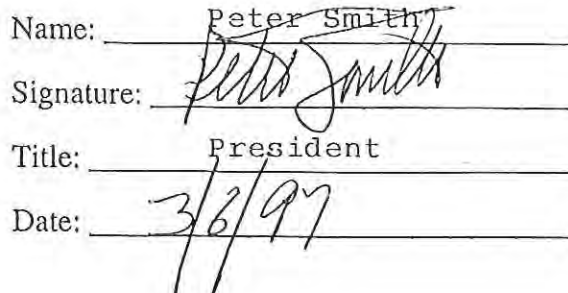 Name: Peter Smith
Signature: Peter Smith
Title: President
Date: 3/6/97